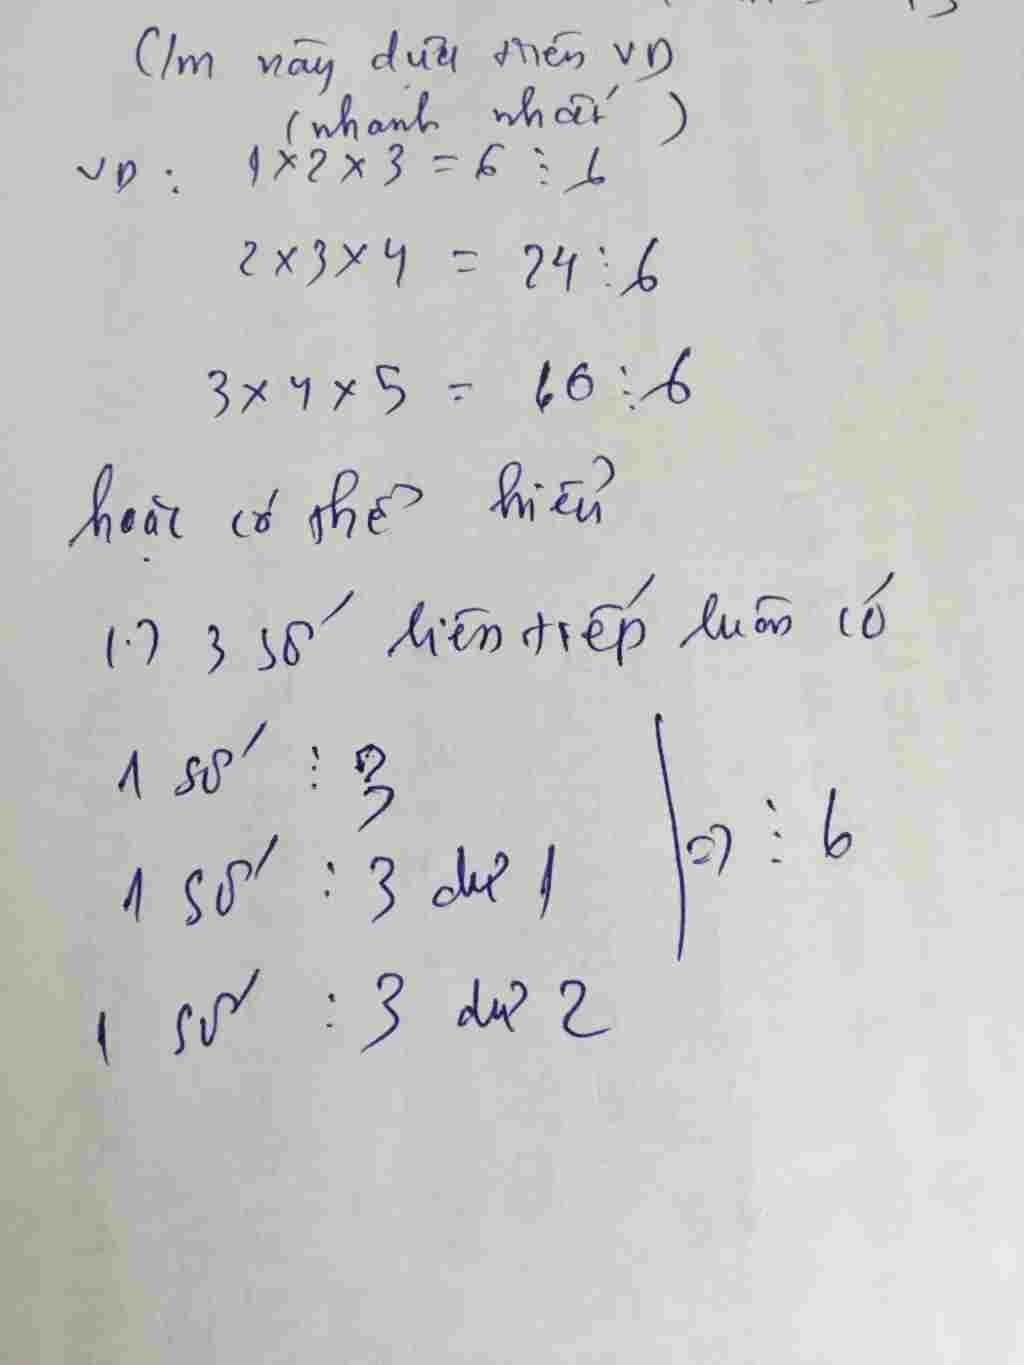 C/m này dựa trên VD
(nhanh nhất)
VD: 1 × 2 × 3 = 6 ⋮ 6
2 × 3 × 4 = 24 ⋮ 6
3 × 4 × 5 = 60 ⋮ 6
hoặc có thể hiểu
3 số liên tiếp luôn có
1 số ⋮ 3
1 số : 3 dư 1
=> ⋮ 6
1 số : 3 dư 2